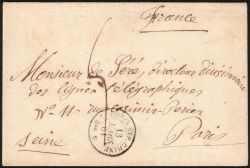 France
Monsieur de Féré, directeur divisionnaire
des lignes télégraphiques
N° 11 - rue Casimir Perier
Paris
Seine